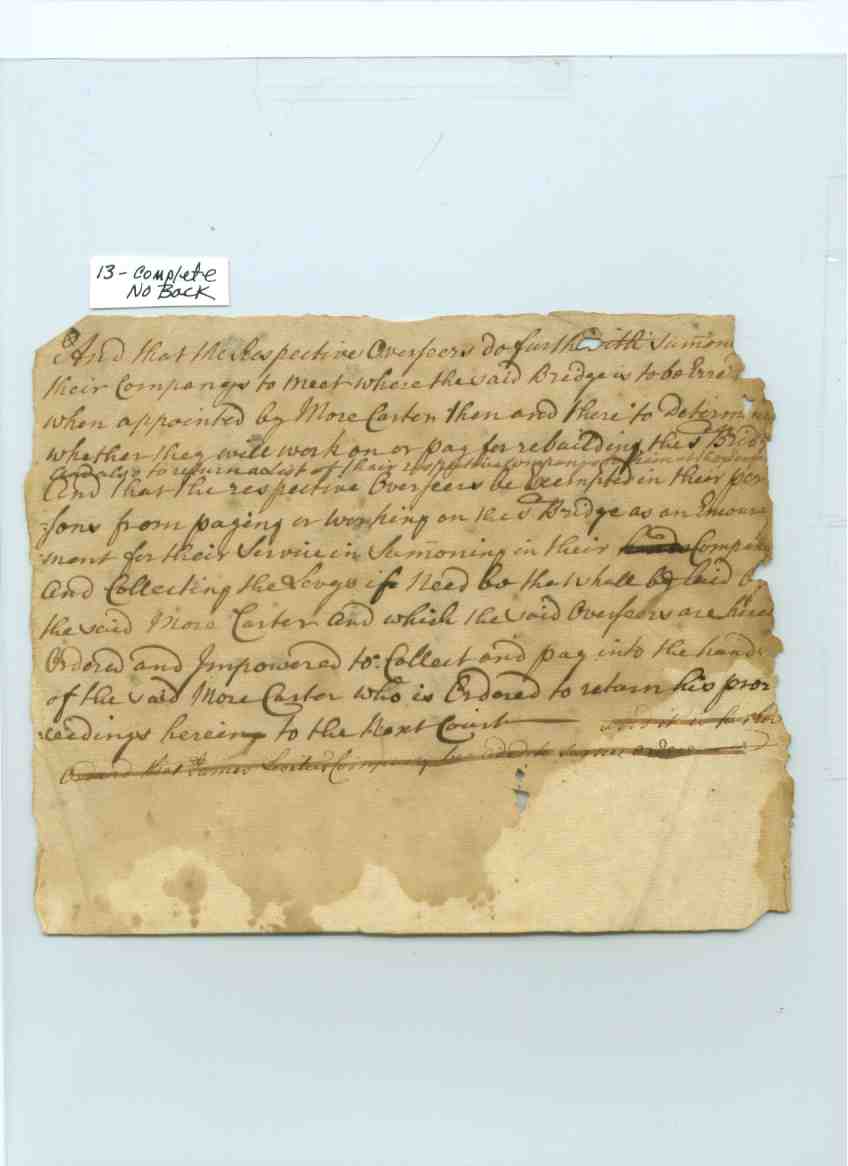 13 - Complete
No Back
And that the Respective Overseers do furth with Sumon
their Companys to meet where the said Bridge is to be Erre
when appointed by More Carter then and there to Determ
whether they will work on or pay for rebuilding the sd Bridg
And also to return a List of their respective Companys
And that the respective Overseers be Exempted in their per
sons from paying or working on the sd Bridge as an Encour
ment for their Service in Sumoning in their Compan
And Collecting the Levys if Need be that shall be laid by
the said More Carter And which the said Overseers are here
Ordered and Impowered to Collect and pay into the hands
of the said More Carter who is Ordered to return his pro
ceedings herein to the Next Court and it is further
Orderd that James Company be added